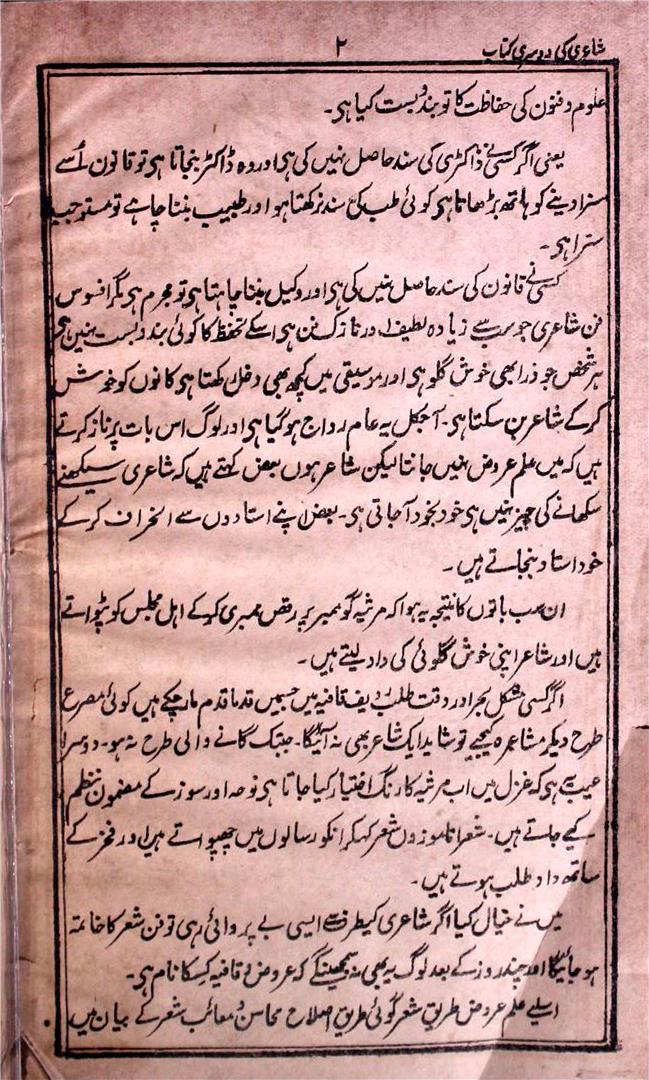 شاعری کی دوسری کتاب
۲
علوم و فنون کی حفاظت کا تو بندوبست کیا ہی۔
یعنی اگر کسی نے ڈاکٹری کی سند حاصل نہیں کی ہی اور وہ ڈاکٹر بنجاتا ہی تو قانون اُسے
سزا دینے کو ہاتھ بڑھاتا ہی کوئی طب کی سند نہ رکھتا ہو اور طبیب بننا چاہے تو مستوجب
سزا ہی۔
کسی نے قانون کی سند حاصل نہیں کی ہی اور وکیل بننا چاہتا ہی تو مجرم ہی مگر افسوس
فن شاعری جو سب سے زیادہ لطیف اور نازک فن ہی اسکے تحفظ کا کوئی بندوبست نہیں ہی
ہر شخص جو ذرا بھی خوش گلو ہی اور موسیقی میں کچھ بھی دخل رکھتا ہی کانوں کو خوش
کرکے شاعر بن سکتا ہی۔ آجکل یہ عام رواج ہوگیا ہی اور لوگ اس بات پر ناز کرتے
ہیں کہ میں علم عروض نہیں جانتا لیکن شاعر ہوں بعض کہتے ہیں کہ شاعری سیکھنے
سکھانے کی چیز نہیں ہی خود بخود آجاتی ہی۔ بعض اپنے استادوں سے انحراف کرکے
خود استاد بنجاتے ہیں۔
ان سب باتوں کا نتیجہ یہ ہوا کہ مرثیہ گو ممبر پر رقص ممبری کرکے اہل مجلس کو پٹواتے
ہیں اور شاعر اپنی خوش گلوئی کی داد لیتے ہیں۔
اگر کسی مشکل بحر اور دقت طلب ردیف قافیہ میں جسمیں قدما قدم مار چکے ہیں کوئی مصرع
طرح دیکر مشاعرہ کیجیے تو شاید ایک شاعر بھی نہ آئیگا۔ جبتک گانے والی طرح نہ ہو۔ دوسرا
عیب یہ ہی کہ غزل میں اب مرثیہ کا رنگ اختیار کیا جاتا ہی نوحہ اور سوز کے مضمون نظم
کیے جاتے ہیں۔ شعرا ناموزوں شعر کہکر انکو رسالوں میں چھپواتے ہیں اور فخر کے
ساتھ داد طلب ہوتے ہیں۔
میں نے خیال کیا اگر شاعری کیطرف سے ایسی بے پروائی رہی تو فن شعر کا خاتمہ
ہو جائیگا اور چند روز کے بعد لوگ یہ بھی نہ سمجھینگے کہ عروض و قافیہ کسکا نام ہی۔
اسلیے علم عروض طریق شعر گوئی طریق اصلاح محاسن و معائب شعر کے بیان میں